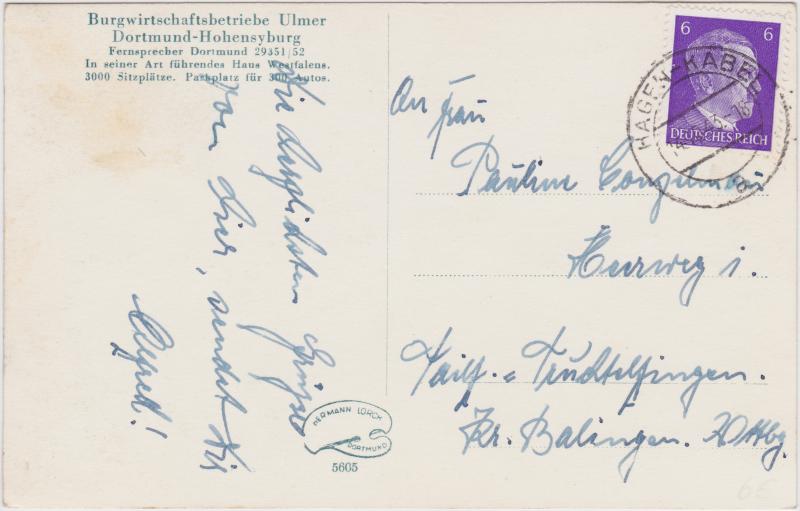 Burgwirtschaftsbetriebe Ulmer
Dortmund-Hohensyburg
Fernsprecher Dortmund 29351/52
In seiner Art führendes Haus Westfalens.
3000 Sitzplätze. Parkplatz für 300 Autos.
Die herzlichsten Grüsse
von hier, sendet Dir
6 6
DEUTSCHES REICH
HAGEN-KABEL
a
An Frau
Pauline
i.
Tailf.= Truchtelfingen.
Kr. Balingen. Wttbg.
HERMANN LORCH
DORTMUND
5605
6E